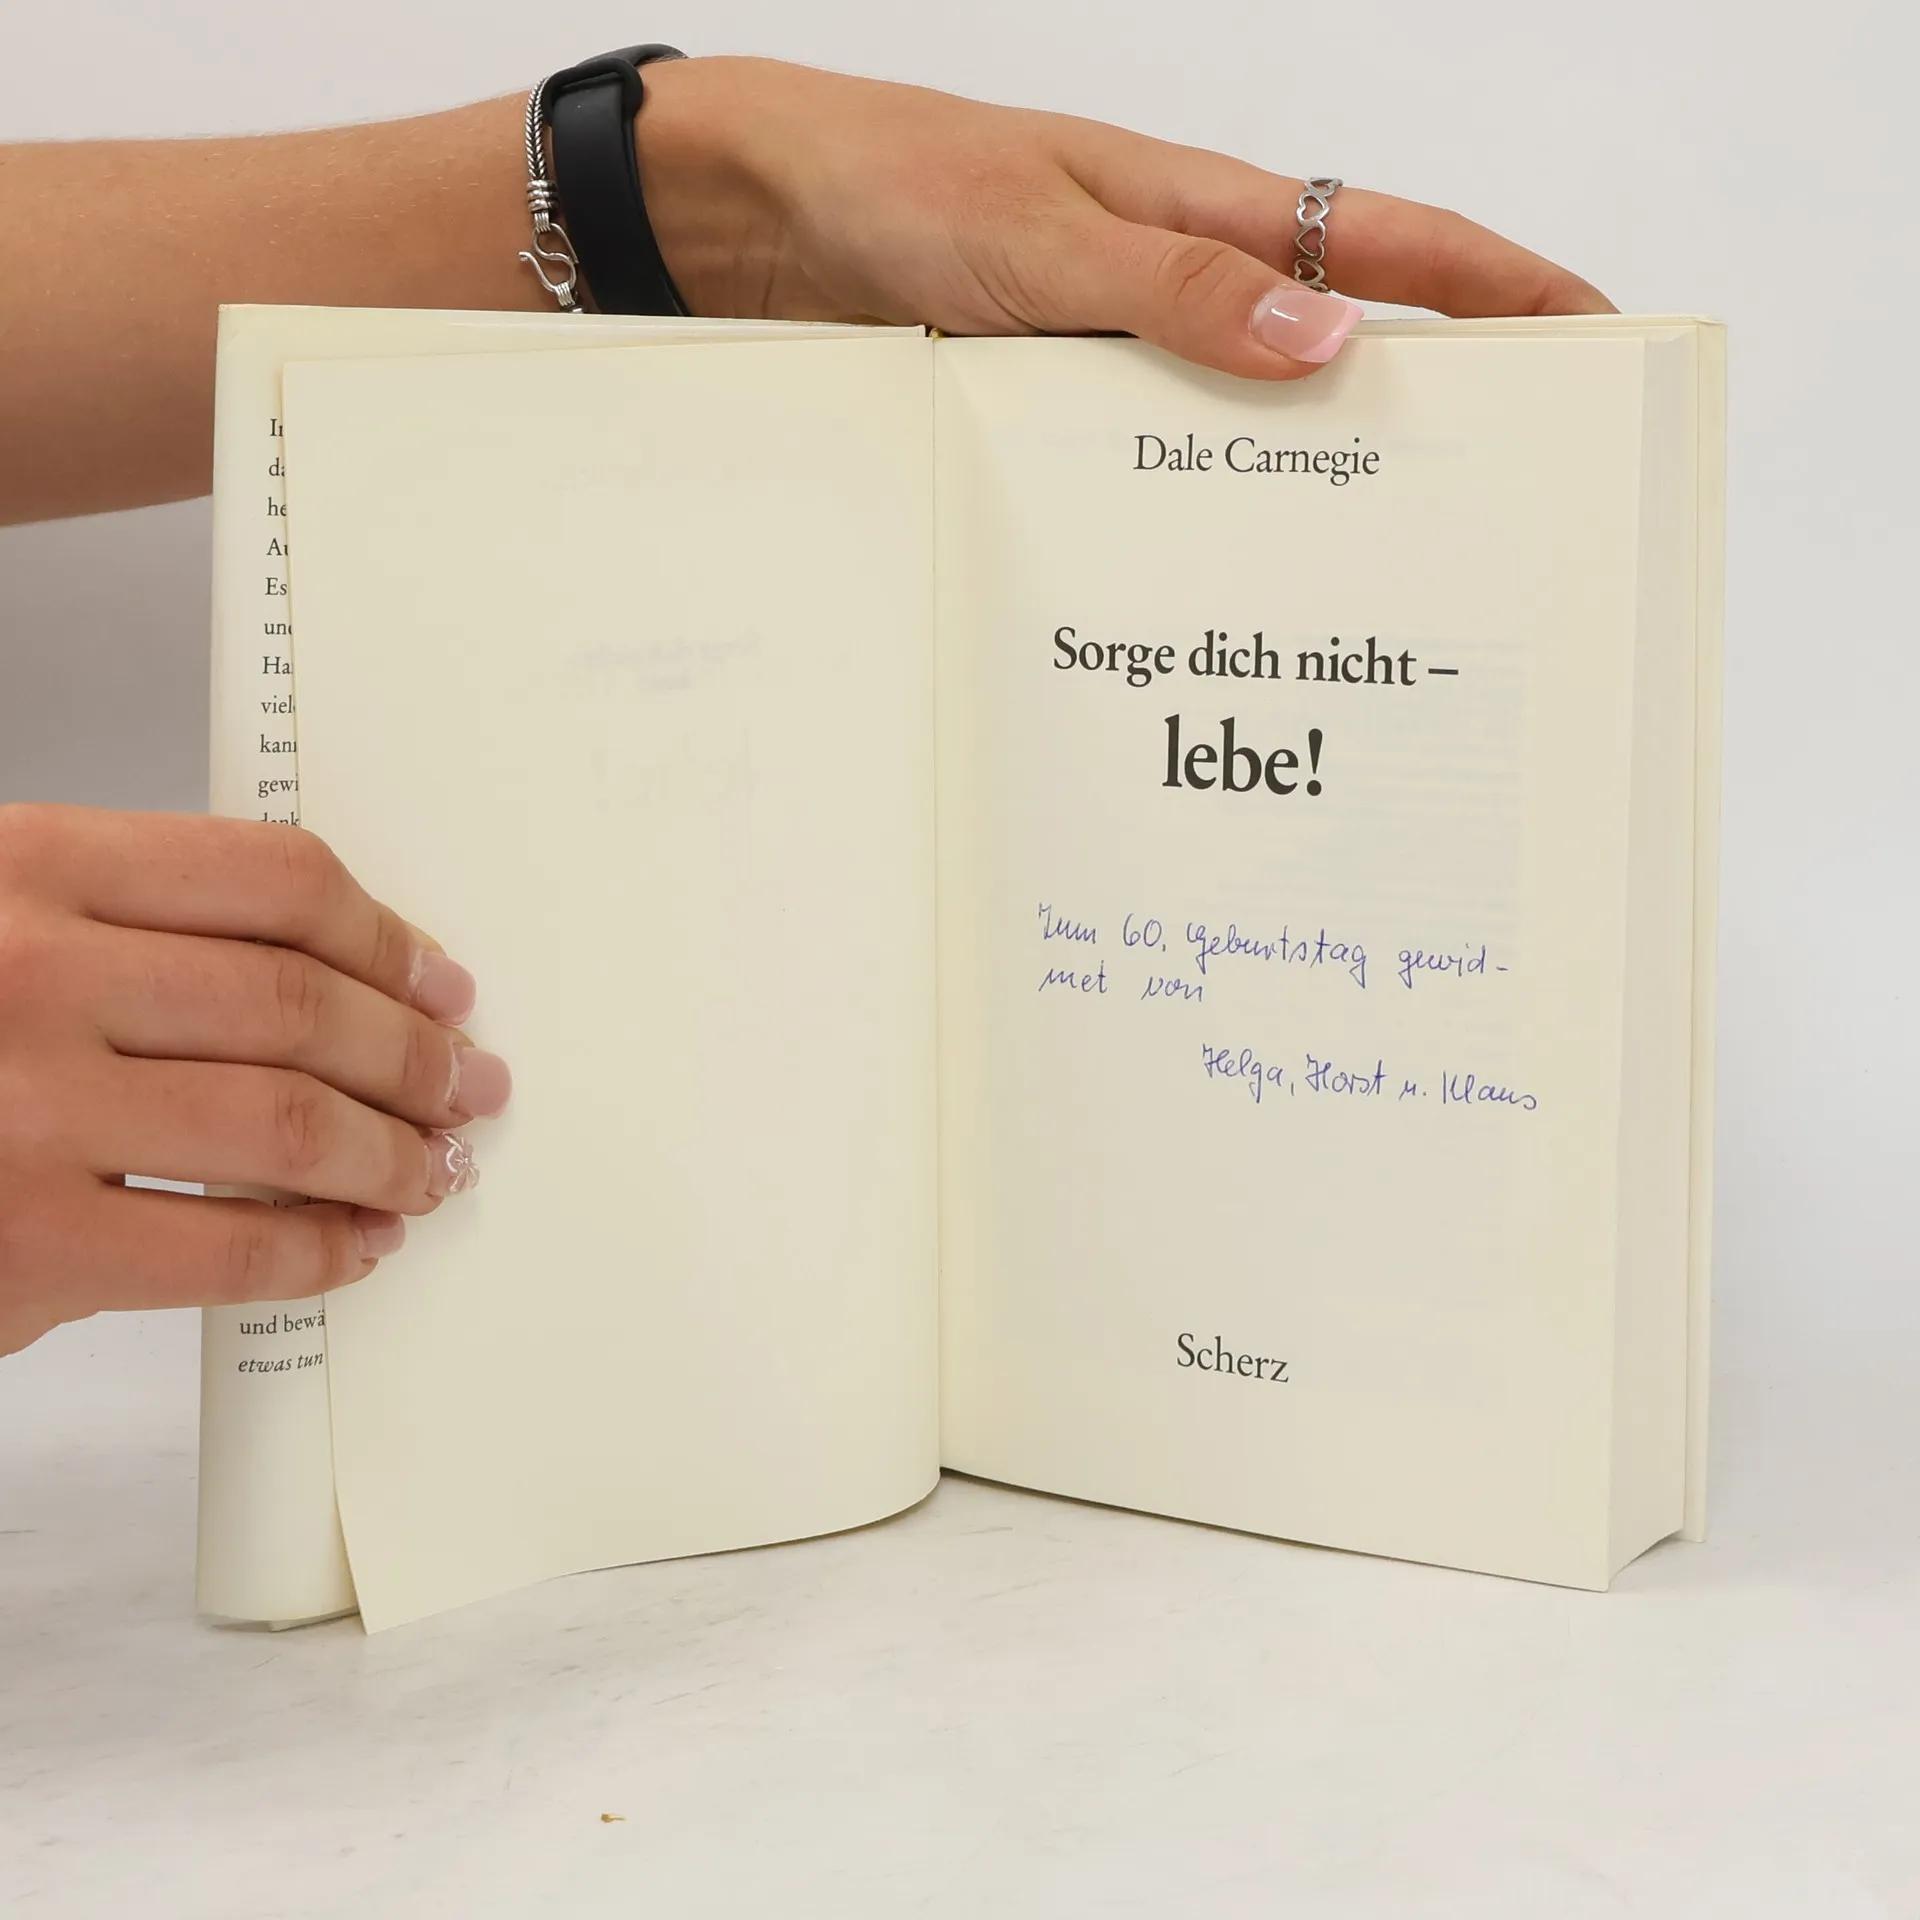 In
da
he
Au
Es
und
Ha
viel
kann
gewi
denk
und bewä
etwas tun
Dale Carnegie
Sorge dich nicht –
lebe!
Zum 60. Geburtstag gewid-
met von
Helga, Horst u. Klaus
Scherz